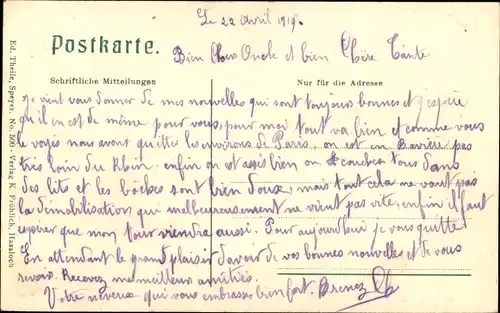 Le 22 Avril 1919.
Postkarte.
Bien Cher Oncle et bien Chère Tante
Schriftliche Mitteilungen
Nur für die Adresse
je vient vous donner de mes nouvelles qui sont toujours bonnes et j'espère
qu'il en est de même pour vous, pour moi tout va bien et comme vous
le voyez nous avont quittés les environs de Paris, on est en Bavière pas
très loin du Rhin. enfin on est assez bien on couches tous dans
des lits et les boches sont bien doux, mais tout cela ne vaut pas
la démobilisation qui malheureusement ne vient pas vite, enfin il faut
espérer que mon tour viendra aussi. Pour aujourd'hui je vous quitte
En attendant le grand plaisir d'avoir de vos bonnes nouvelles et de vous
revoir. Recevez mes meilleurs amitiés.
Votre neveux qui vous embrasses bien fort.
Ed. Theile, Speyer. No. 500 - Verlag K. Fröhlich, Hassloch